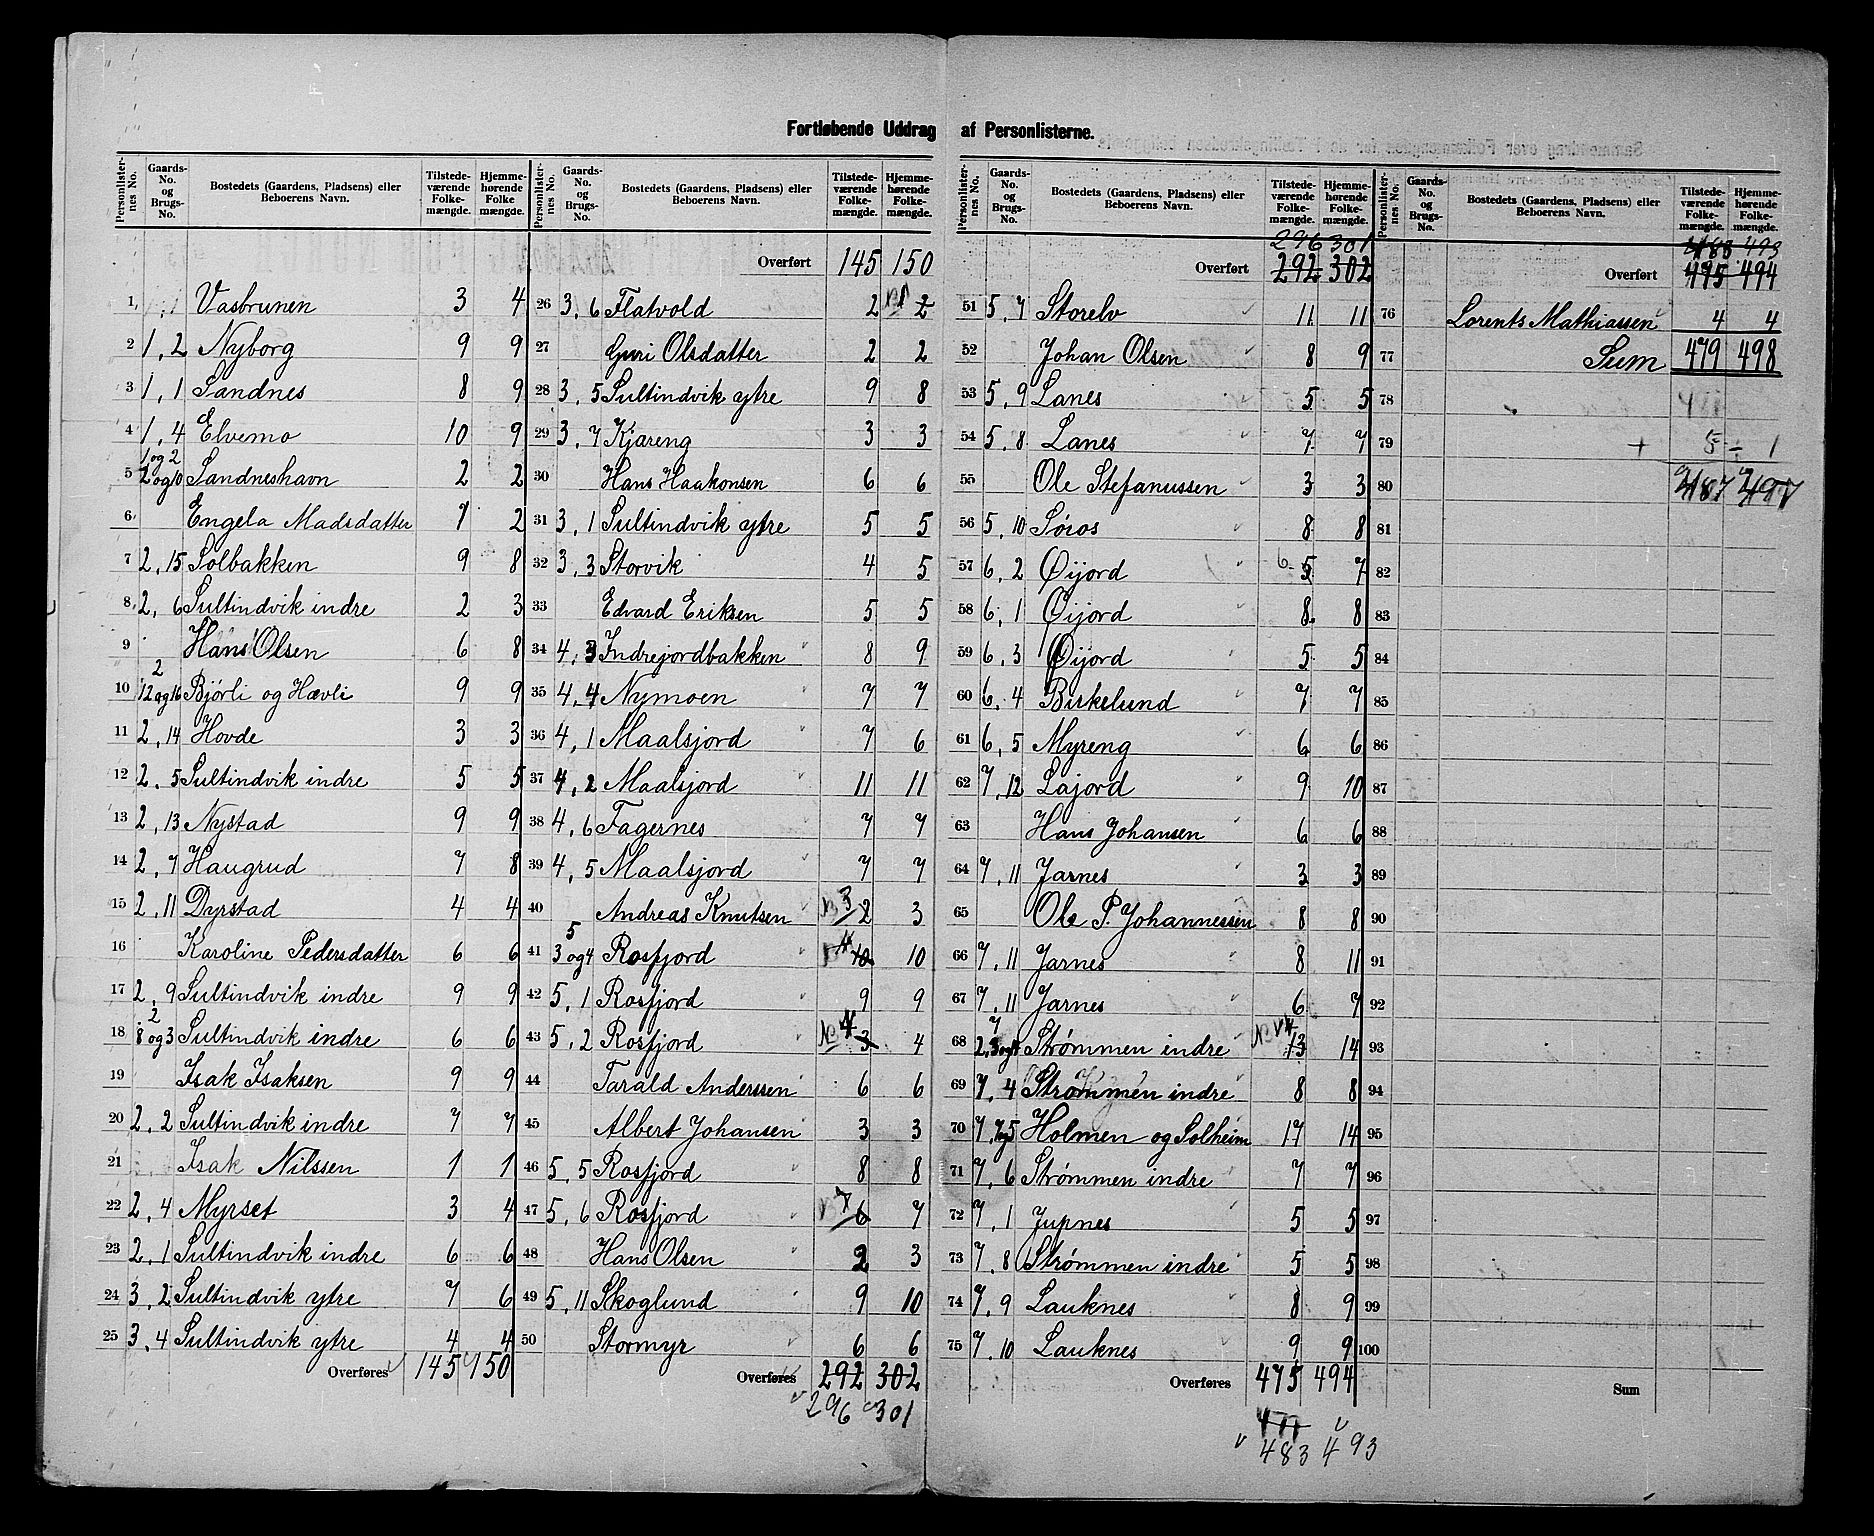 Fortløbende Uddrag af Personlisterne.
Personlister-nes No. Gaards-No. og Brugs-No. Bostedets (Gaardens, Pladsens) eller Beboerens Navn. Tilstede-værende Folke-mængde. Hjemme-hørende Folke mængde.
1 1 Vasbrunen 3 4
2 1, 2 Nyborg 9 9
3 1, 1 Sandnes 8 9
4 1, 4 Elvemo 10 9
5 1 og 2 2 og 10 Sandneshavn 2 2
6 Engela Madsdatter 1 2
7 2, 15 Solbakken 9 8
8 2, 6 Sultindvik indre 2 3
9 Hans Olsen 6 8
10 2 12 og 16 Bjørli og Hævli 9 9
11 2, 14 Hovde 3 3
12 2, 5 Sultindvik indre 5 5
13 2, 13 Nystad 9 9
14 2, 7 Haugrud 7 8
15 2, 11 Dyrstad 4 4
16 Karoline Pedersdatter 6 6
17 2, 9 Sultindvik indre 9 9
18 2 8 og 3 Sultindvik indre 6 6
19 Isak Isaksen 9 9
20 2, 2 Sultindvik indre 7 7
21 Isak Nilssen 1 1
22 2, 4 Myrset 3 4
23 2, 1 Sultindvik indre 6 6
24 3, 2 Sultindvik ytre 7 6
25 3, 4 Sultindvik ytre 4 4
Overføres 145 150
Personlister-nes No. Gaards-No. og Brugs-No. Bostedets (Gaardens, Pladsens) eller Beboerens Navn. Tilstede-værende Folke-mængde. Hjemme-hørende Folke-mængde.
Overført 145 150
26 3, 6 Flatvold 2 1 2
27 Guri Olsdatter 2 2
28 3, 5 Sultindvik ytre 9 8
29 3, 7 Kjæreng 3 3
30 Hans Haakonsen 6 6
31 3, 1 Sultindvik ytre 5 5
32 3, 3 Storvik 4 5
33 Edvard Eriksen 5 5
34 4, 3 Indrejordbakken 8 9
35 4, 4 Nymoen 7 7
36 4, 1 Maalsjord 7 6
37 4, 2 Maalsjord 11 11
38 4, 6 Fagernes 7 7
39 4, 5 Maalsjord 7 7
40 Andreas Knutsen 3 2 3
41 5 3 og 4 Rosfjord 10 10
42 5, 1 Rosfjord 9 9
43 5, 2 Rosfjord No 4 3 4
44 Tarald Anderssen 6 6
45 Albert Johansen 3 3
46 5, 5 Rosfjord 8 8
47 5, 6 Rosfjord 7 6 7
48 Hans Olsen 2 3
49 5, 11 Skoglund 9 10
50 Stormyr 6 6
Overføres 292 302
296 301
Personlister-nes No. Gaards-No. og Brugs-No. Bostedets (Gaardens, Pladsens) eller Beboerens Navn. Tilstede-værende Folke-mængde. Hjemme-hørende Folke-mængde.
296 301
Overført 292 302
51 5, 7 Storelv 11 11
52 Johan Olsen 8 9
53 5, 9 Lanes 5 5
54 5, 8 Lanes 7 7
55 Ole Stefanussen 3 3
56 5, 10 Søros 8 8
57 6, 2 Øijord 6 5 7
58 6, 1 Øijord 8 8
59 6, 3 Øijord 5 5
60 6, 4 Birkelund 7 7
61 6, 5 Myreng 6 6
62 7, 12 Lajord 9 10
63 Hans Johansen 6 6
64 7, 11 Jarnes 3 3
65 Ole P. Johannessen 8 8
66 7, 11 Jarnes 8 11
67 7, 11 Jarnes 6 7
68 7 2, 3 og 4 Strømmen indre 13 14
69 7, 4 Strømmen indre 8 8
70 7, 7 og 5 Holmen og Solheim 17 14
71 7, 6 Strømmen indre 7 7
72 7, 1 Jupnes 5 5
73 7, 8 Strømmen indre 5 5
74 7, 9 Lauknes 8 9
75 7, 10 Lauknes 9 9
Overføres 475 494
483 493
Personlister-nes No. Gaards-No. og Brugs-No. Bostedets (Gaardens, Pladsens) eller Beboerens Navn. Tilstede-værende Folke-mængde. Hjemme-hørende Folke-mængde.
483 493
Overført 475 494
76 Lorents Mathiassen 4 4
77 Sum 479 498
78
79 + 5 ÷ 1
80 487 497
81
82
83
84
85
86
87
88
89
90
91
92
93
94
95
96
97
98
99
100
Sum